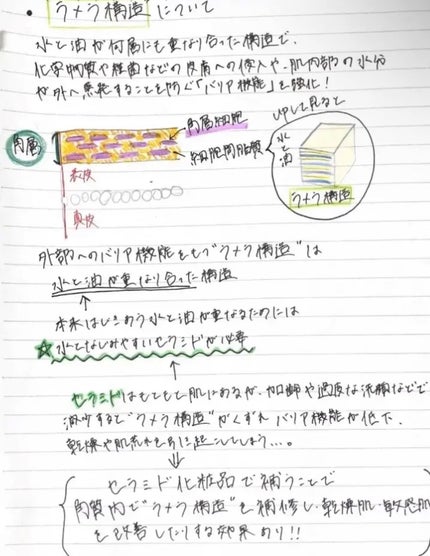 • ラメラ構造 について
水と油が何層にも重なり合った構造で、
化学物質や雑菌などの皮膚への侵入や、肌内部の水分
が外へ蒸発することを防ぐ「バリア機能」を強化!
角層
角層細胞
細胞間脂質
表皮
真皮
UPして見ると
水と油
ラメラ構造
外部へのバリア機能をもつ"ラメラ構造"は
水と油が重なり合った構造
↑
本来はじきあう水と油が重なるためには
☆水となじみやすいセラミドが必要
↑
セラミドはもともと肌にあるが、加齢や過度な洗顔などで
減少すると"ラメラ構造"がくずれ バリア機能が低下、
乾燥や肌荒れを起こしてしまう…。
⇓
セラミド化粧品で補うことで
角質内で"ラメラ構造"を補修し、乾燥肌・敏感肌
を改善したりする効果あり!!